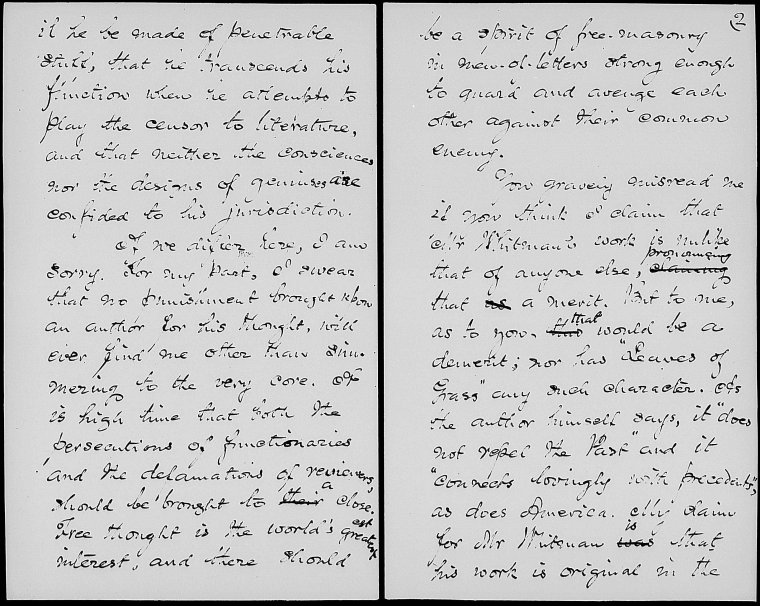 if he be made of penetrable
stuff, that he transcends his
function when he attempts to
play the censor to literature,
and that neither the consciences
nor the designs of geniuses are
confided to his jurisdiction.
If we differ here, I am
sorry. For my part, I swear
that no punishment brought upon
an author for his thought, will
ever find me other than sim-
mering to the very core. It
is high time that both the
persecutions of functionaries
and the defamations of reviewers,
should be brought to their a close.
Free thought is the world's greatest
interest, and there should
2
be a spirit of free-masonry
in men-of-letters strong enough
to guard and avenge each
other against their common
enemy.
You gravely misread me
if you think I claim that
Mr Whitman's work is unlike
that of anyone else, claiming pronouncing
that as a merit. But to me,
as to you, this that would be a
demerit; nor has "Leaves of
Grass" any such character. As
the author himself says, it "does
not repel the Past" and it
"connects lovingly with precedents",
as does America. My claim
for Mr Whitman was is that
his work is original in the